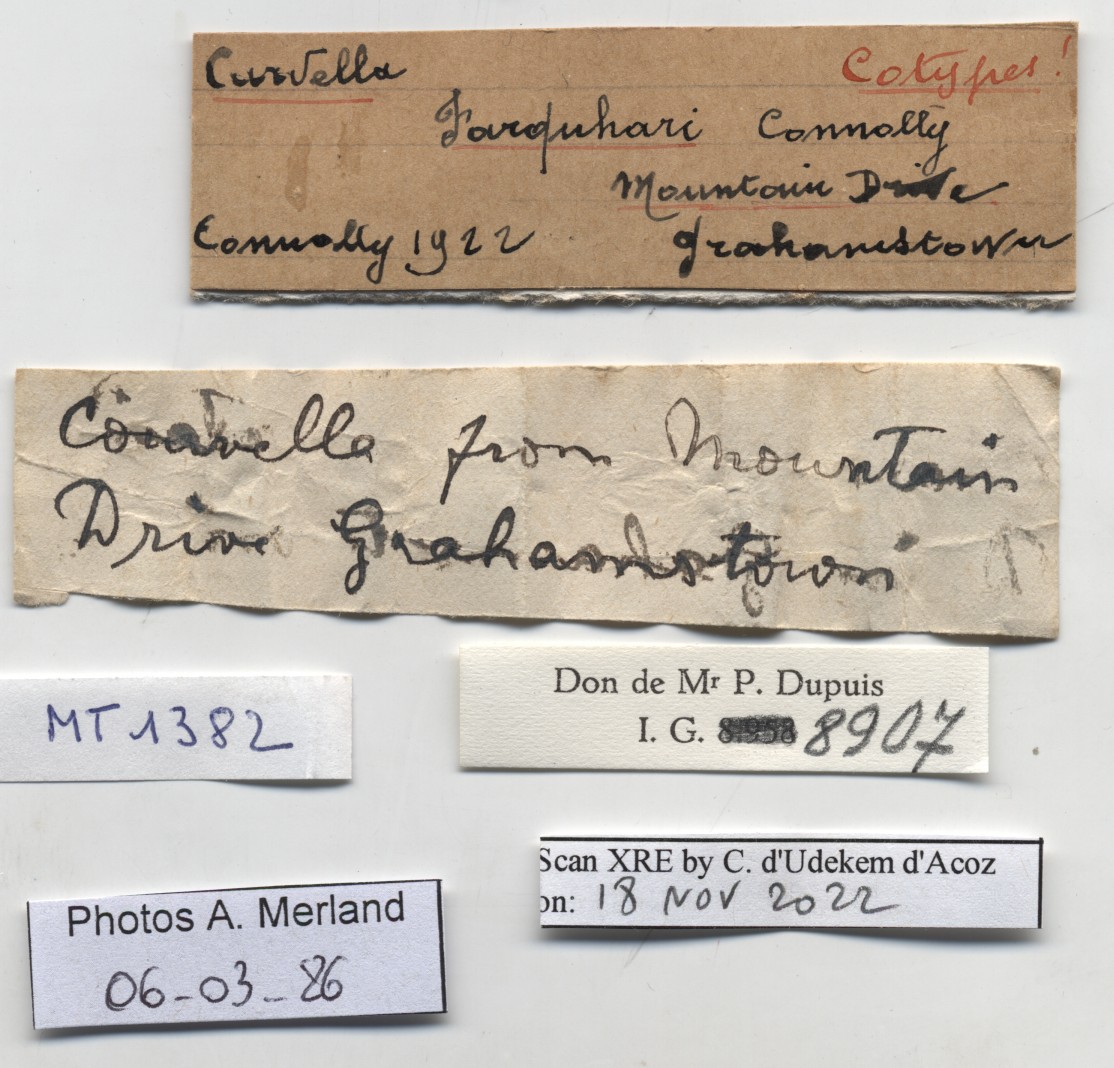 Curvella Cotypes!
Farquhari Connolly
Mountain Drive
Connolly 1922 Grahamstown
Courvella from Mountain
Drive Grahamstown
MT 1382
Don de Mr P. Dupuis
I. G. 8958 8907
Scan XRE by C. d'Udekem d'Acoz
on: 18 NOV 2022
Photos A. Merland
06-03-86